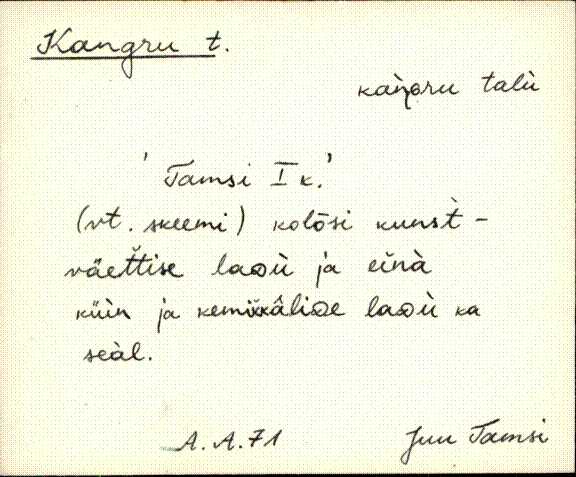 Kangru t.
kaŋ̀ɢru talù
'Tamsi I k.'
(vt. skeemi) kolõsi kunst̀-
väet̆t̆ise laᴅù ja eĭnà
küìn ja kemĭkkâliᴅe laᴅù ka
seàl.
A. A. 71 Juu Tamsi